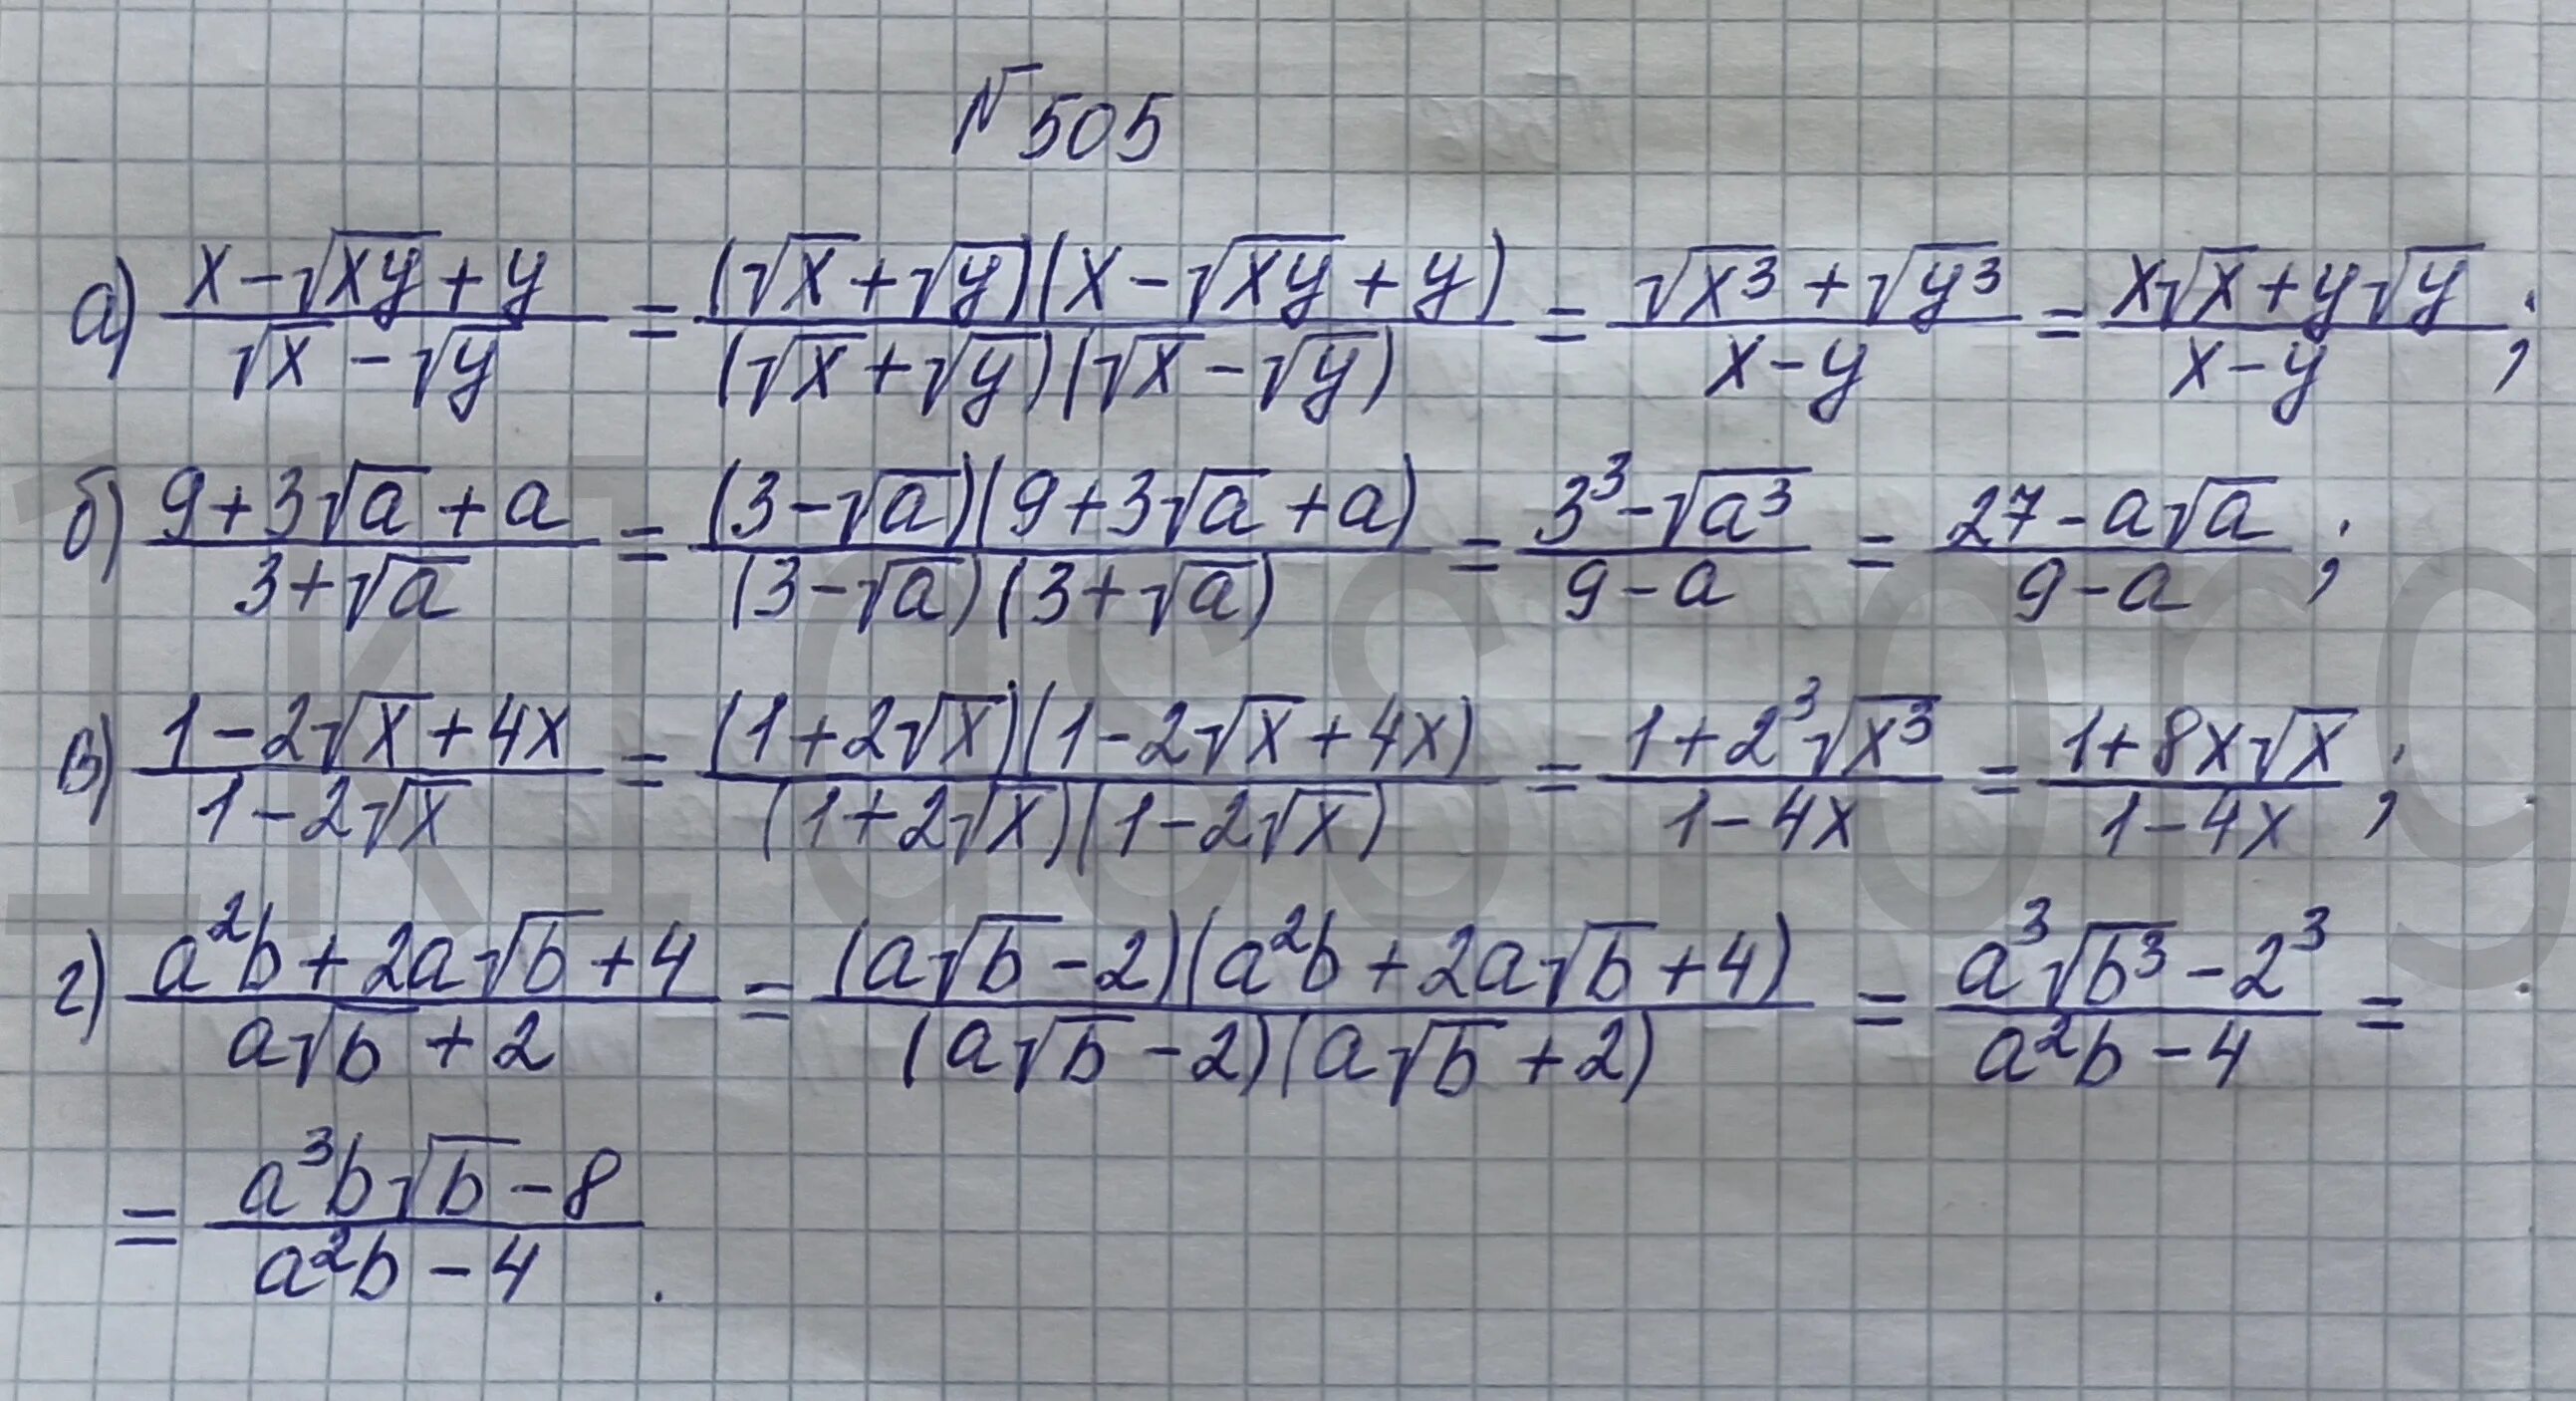 № 505
а) (x - √(xy) + y)/(√x - √y) = ((√x + √y)(x - √(xy) + y))/((√x + √y)(√x - √y)) = (√(x³) + √(y³))/(x - y) = (x√x + y√y)/(x - y);
б) (9 + 3√a + a)/(3 + √a) = ((3 - √a)(9 + 3√a + a))/((3 - √a)(3 + √a)) = (3³ - √(a³))/(9 - a) = (27 - a√a)/(9 - a);
в) (1 - 2√x + 4x)/(1 - 2√x) = ((1 + 2√x)(1 - 2√x + 4x))/((1 + 2√x)(1 - 2√x)) = (1 + 2³√(x³))/(1 - 4x) = (1 + 8x√x)/(1 - 4x);
г) (a²b + 2a√b + 4)/(a√b + 2) = ((a√b - 2)(a²b + 2a√b + 4))/((a√b - 2)(a√b + 2)) = (a³√(b³) - 2³)/(a²b - 4) =
= (a³b√b - 8)/(a²b - 4).
1klass.org